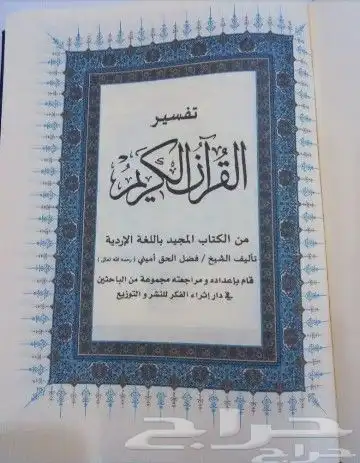 تفسير
القرآن الكريم
من الكتاب المجيد باللغة الإردية
تأليف الشيخ / فضل الحق أميني ( رحمه الله تعالى )
قام بإعداده و مراجعته مجموعة من الباحثين
في دار إثراء الفكر للنشر و التوزيع
حراج
حراج